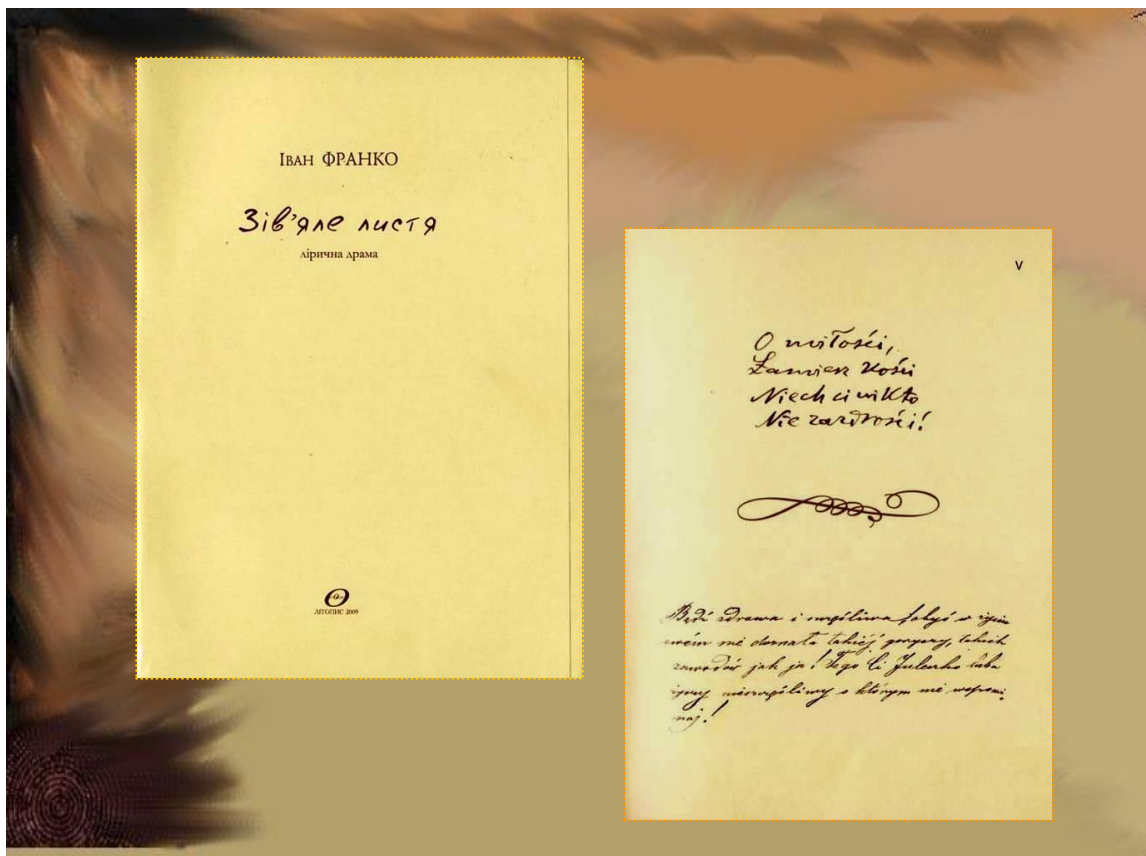 Іван ФРАНКО
Зів’яле листя
лірична драма
ЛІТОПИС 2009
V
O miłości,
Zamier kości
Niech ci nikto
Nie zazdrości!
Bądź zdrowa i szczęśliwa żebyś w życiu
swém nié doznała takiéj goryczy, takich
zawodów jak ja! Tego Ci Juleczko luba
życzy nieszczęśliwy o którym nié wspomi
naj!